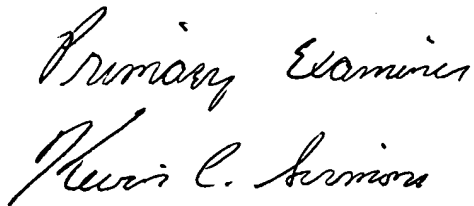 Primary Examiner
Kevin C. Sirmons